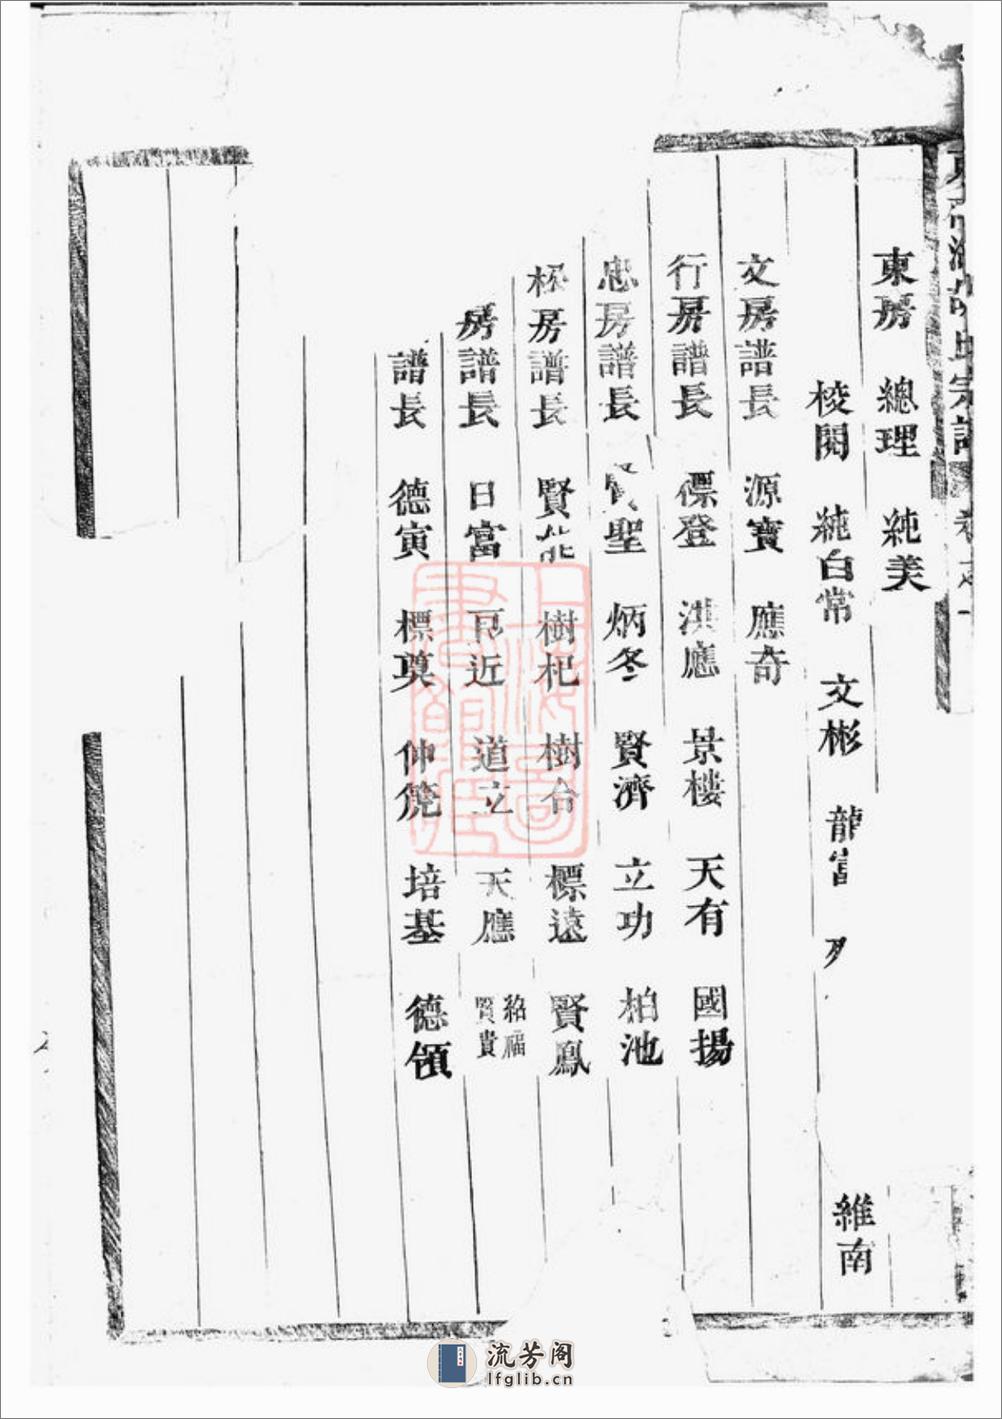 氏宗譜
東房 總理 純美
棱開 純白常 文彬 龍富 維南
文房譜長 源寶 應奇
行房譜長 標登 洪應 景樓 天有 國揚
忠房譜長 賢聖 炳冬 賢濟 立功 柏池
松房譜長 賢能 樹杞 樹台 標遠 賢鳳
房譜長 日富 近 道立 天應 紹福 賢貴
譜長 德寅 標奠 仲篪 培基 德領
上海圖書館藏
流芳阁
lfglib.cn